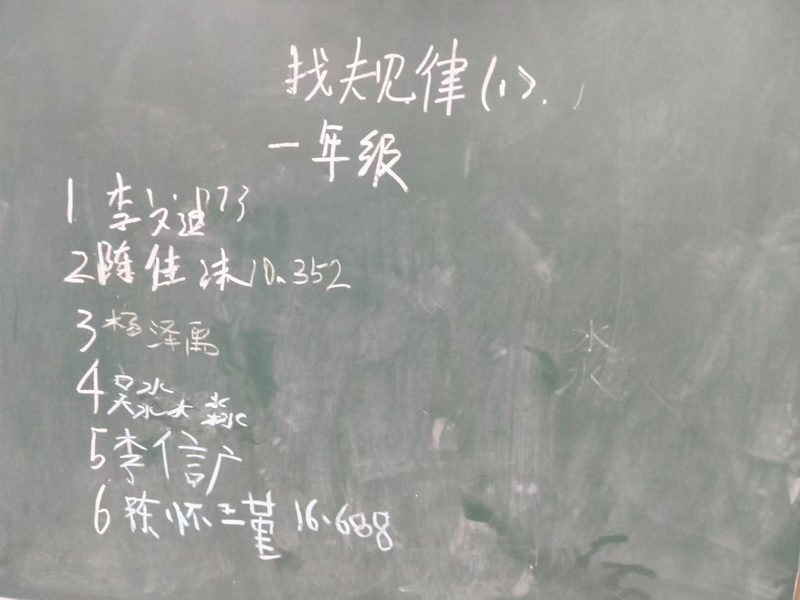 找规律(1).
一年级
1 李文迪 173
2 陈佳沫 10.352
3 杨泽禹
4 吴
5 李信
6 陈怀 16.688
水